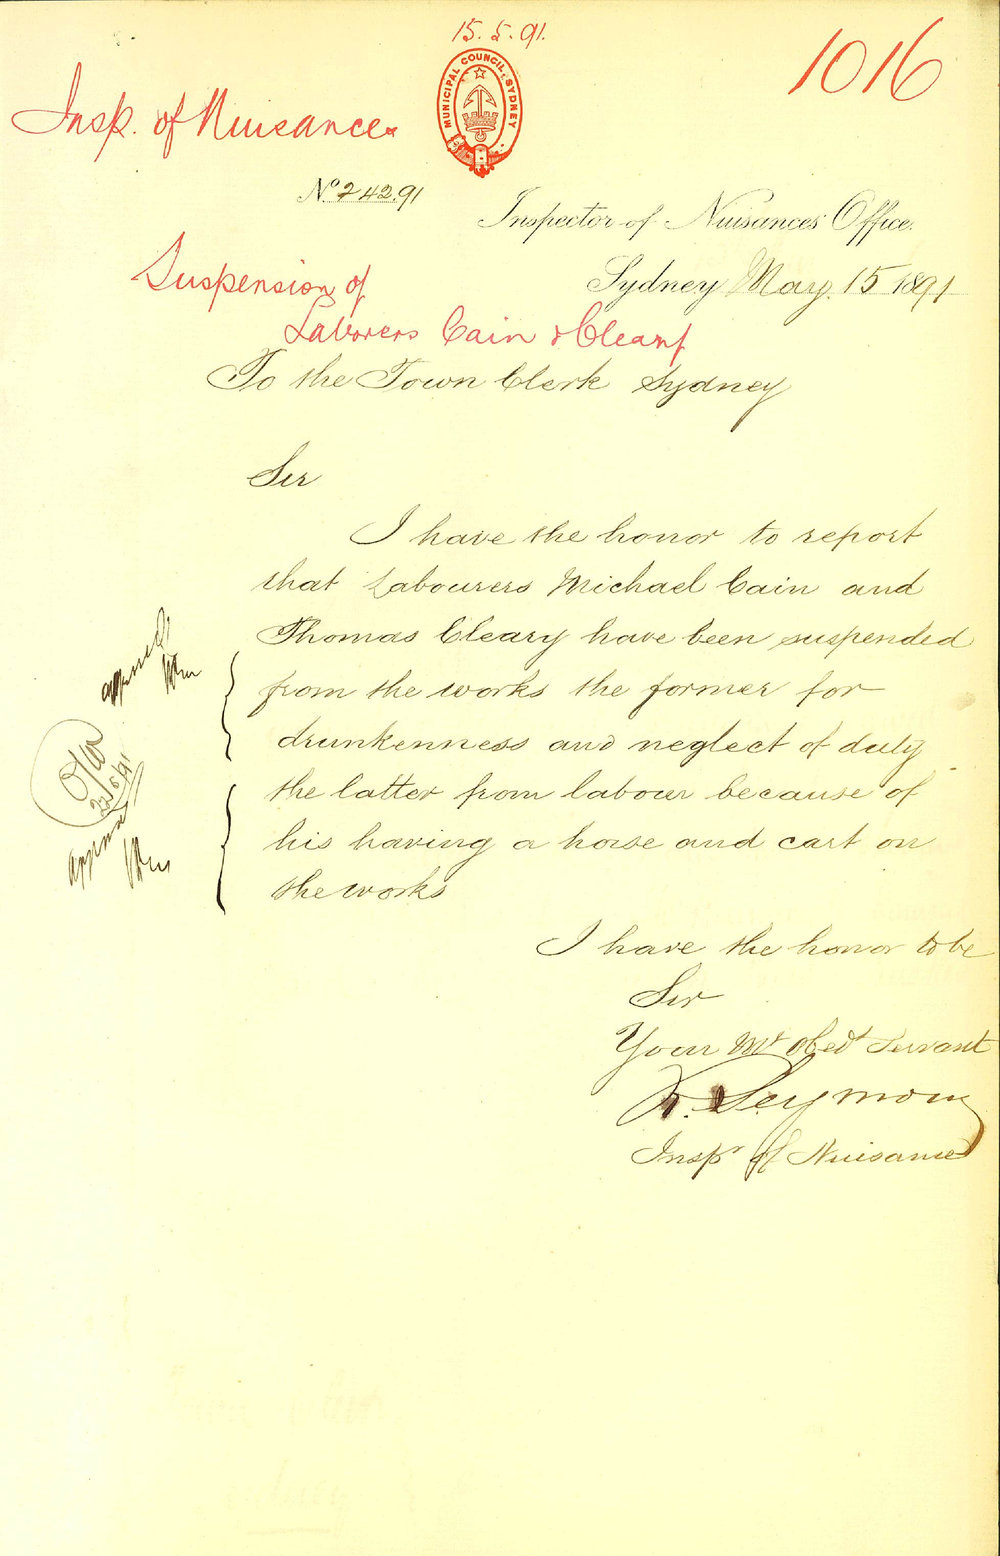 15.5.91.
1016
Insp. of Nuisances
MUNICIPAL COUNCIL, SYDNEY
No. 242.91
Inspector of Nuisances Office.
Suspension of
Sydney May. 15 1891
Laborers Cain & Cleary
To the Town Clerk Sydney
Sir
I have the honor to report
that Labourers Michael Cain and
Thomas Cleary have been suspended
from the works the former for
drunkenness and neglect of duty
the latter from labour because of
his having a horse and cart on
the works
22/5/91
I have the honor to be
Sir
Your Mt Obedt Servant
R. Seymour
Inspr of Nuisances